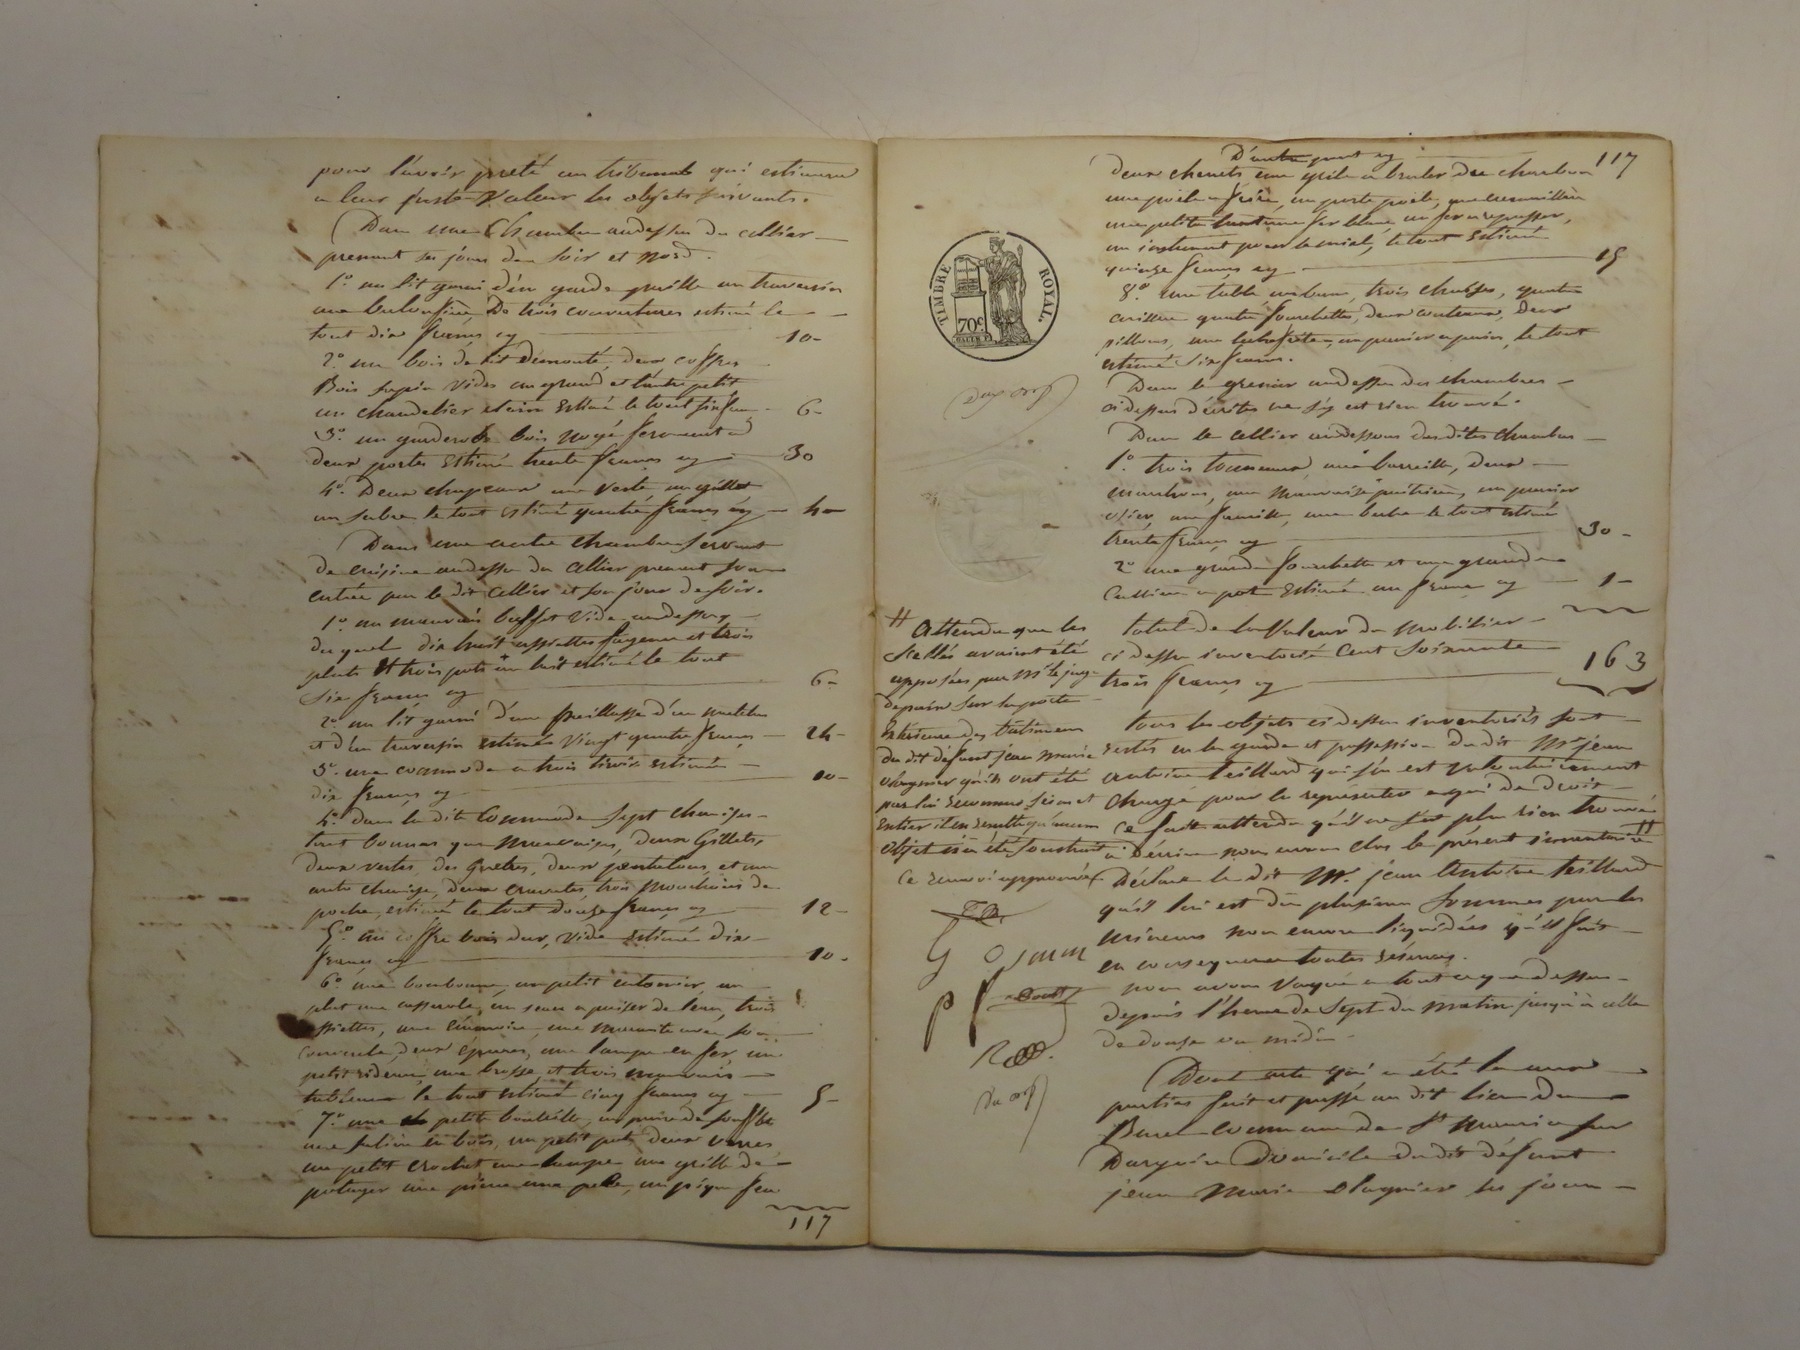 pour l'avoir preté au tribunal qui estimeront
a leur juste valeur les objets suivants.
Dans une Chambre audessu du cellier
prenant ses jours de soir et nord.
1o. un lit garni d'un garde paille un traversin
une De trois couvertures estimé le
tout dix francs cy 10-
2o. un bois de lit démonté, deux coffres
Bois sapin vides un grand et l'autre petit
un chandelier etain Estimé le tout six francs 6-
3o. un garderobe bois noyé fermant a
deux portes Estimé trente francs cy 30
4o. Deux chapeaux une veste un gillet
un sabre le tout estimé quatre francs cy 4-
Dans une autre chambre servant
de cuisine audessu du cellier prenant son
entrée par le dit cellier et son jour de soir.
1o un mauvais buffet vide audessus
duquel dix huit assiettes fayence et trois
plats et trois pots un huit estimé le tout
six francs cy 6-
2o un lit garni d'une paillasse d'un matelas
et d'un traversin estimé vingt quatre francs 24-
3o. une commode a trois tiroirs estimée
dix francs cy 10-
4o. dans la dite Commode sept chemises
tant bonnes que mauvaises, deux Gillets,
deux vestes, des Guetres, deux pantalons, et une
autre chemise, deux cravates trois mouchoirs de
poche, estimé le tout douze francs cy 12-
5o. un coffre bois dur, vide estimé dix
francs cy 10-
6o. une bonbonne, un petit entonnoir, un
plat une casserole, un seau a puiser de l'eau, trois
assiettes, une une marmite avec son
couvercle, deux une lampe en fer, un
petit rideau, une brosse et trois mauvais
le tout estimé cinq francs cy 5-
7o. une petite bouteille, un
une salière en bois, un petit pot deux verres
un petit crochet une lampe une grille de
potager une pierre une pelle, un pique feu
117
D'autre part cy 117
deux chenets une grille a bruler du charbon
une poele a frire, un porte poele, une cremaillère
une petite lanterne fer blanc un fer a repasser,
un instrument pour le miel, le tout Estimé
quinze francs cy 15
8o. une table trois chaises, quatre
cuillers quatre fourchettes, deux couteaux, Deux
un panier a pain, le tout
estimé six francs.
Dans le grenier audessu des chambres
ci dessus décrites ne s'y est rien trouvé.
Dans le cellier audessous desdites chambres
1o. trois tonneaux une barreille, deux
une mauvaise petrière, un panier
osier, une faucille, une beche le tout estimé
trente francs cy 30-
2o une grande fourchette et une grande
Cuillere a pot Estimé un franc cy 1-
total de la valeur du mobilier
ci dessu inventorié Cent Soixante
trois francs cy 163
tous les objets ci dessu inventoriés sont
restés en la garde et possession du dit Mr jean
antoine teillard qui s'en est volontairement
chargé pour les représenter a qui de droit
ce fait attendu qu'il ne s'est plus rien trouvé
a décrire nous avons clos le présent inventaire #
Déclare le dit Mr. jean Antoine teillard
qu'il lui est du plusieurs sommes par les
mineurs non encore liquidées qu'il fait
en consequence toutes réserves.
nous avons vaqué a tout ce que dessu
depuis l'heure de Sept du matin jusqu'à celle
de douze ou midi.
Dont acte qui a été lu aux
parties fait et passé au dit lieu du
Buret commune de St Maurice sur
Dargoire Domicile du dit défunt
jean Marie olagnier les jour
TIMBRE ROYAL.
70c
# Attendu que les
Scellés avaient été
apposées par Mr le juge
de paix sur la porte
Extérieure des batimens
du dit défunt jean marie
olagnier qu'ils ont été
par lui reconnus sains et
Entier il en resulte qu'aucun
objet n'a été soustrait
ce renvoi approuvé